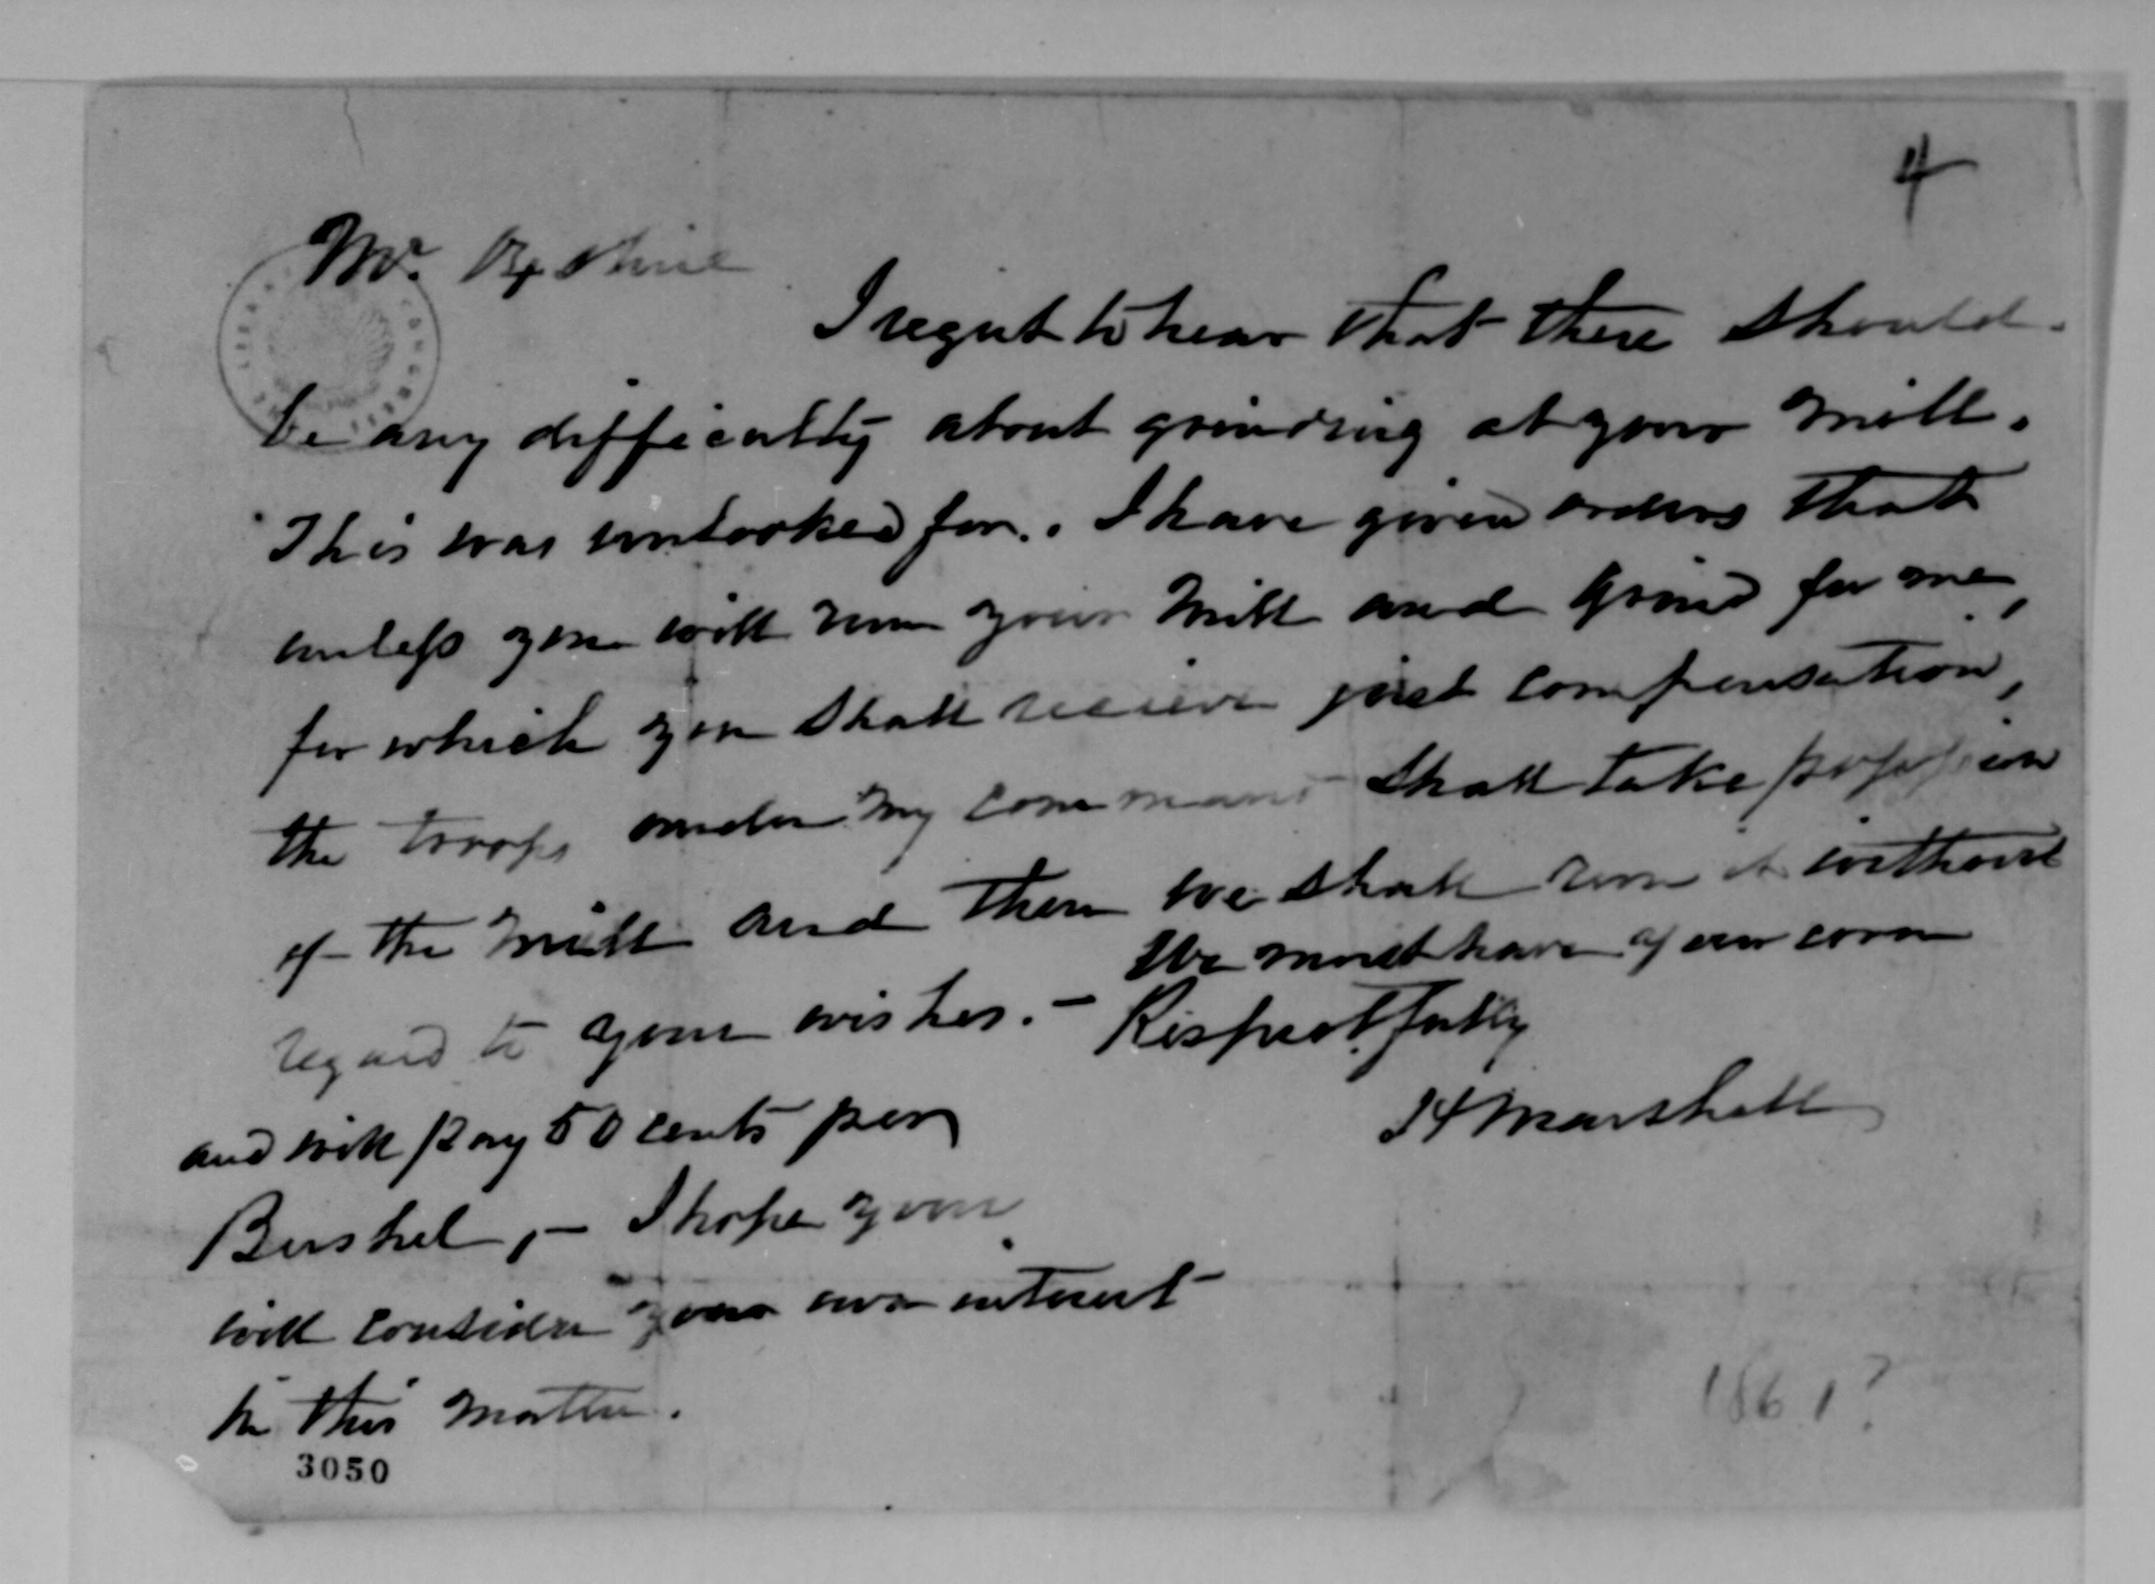 4
Mr.
I regret to hear that there should
be any difficulty about grinding at your Mill.
This was unlooked for.. I have given orders that
unless you will run your Mill and grind for me,
for which you shall receive just compensation,
the troops under my command shall take possession
of the Mill and then we shall run it without
regard to your wishes. – We must have your corn
Respectfully
H Marshall
and will pay 50 cents per
Bushel, – I hope you
will consider your own interest
in this matter.
3050
1861?